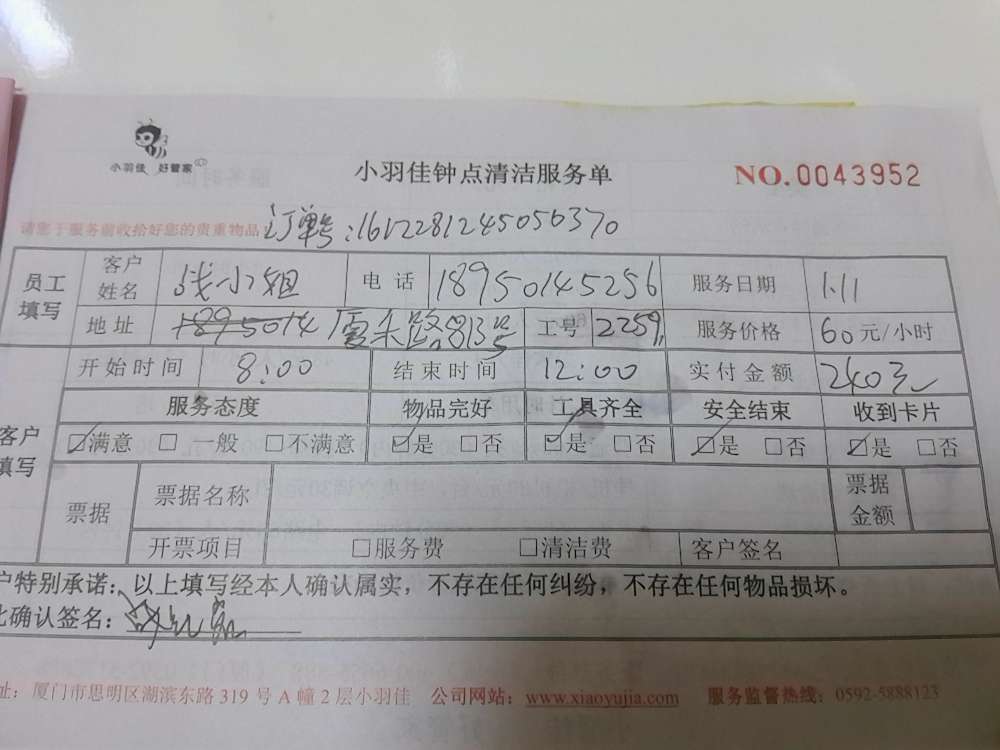 小羽佳 好管家
小羽佳钟点清洁服务单
NO.0043952
请您于服务前收拾好您的贵重物品
订单号:1612281245056370
员工填写 客户姓名 钱小姐 电话 18950145256 服务日期 1.11
地址 1895014 厦禾路813号 工号 2259 服务价格 60元/小时
开始时间 8:00 结束时间 12:00 实付金额 240元
客户填写 服务态度 物品完好 工具齐全 安全结束 收到卡片
☑满意 □一般 □不满意 ☑是 □否 ☑是 □否 ☑是 □否 ☑是 □否
票据 票据名称 票据金额
开票项目 □服务费 □清洁费 客户签名
户特别承诺:以上填写经本人确认属实,不存在任何纠纷,不存在任何物品损坏。
此确认签名:
址:厦门市思明区湖滨东路 319 号 A 幢 2 层小羽佳 公司网站:www.xiaoyujia.com 服务监督热线:0592-5888123